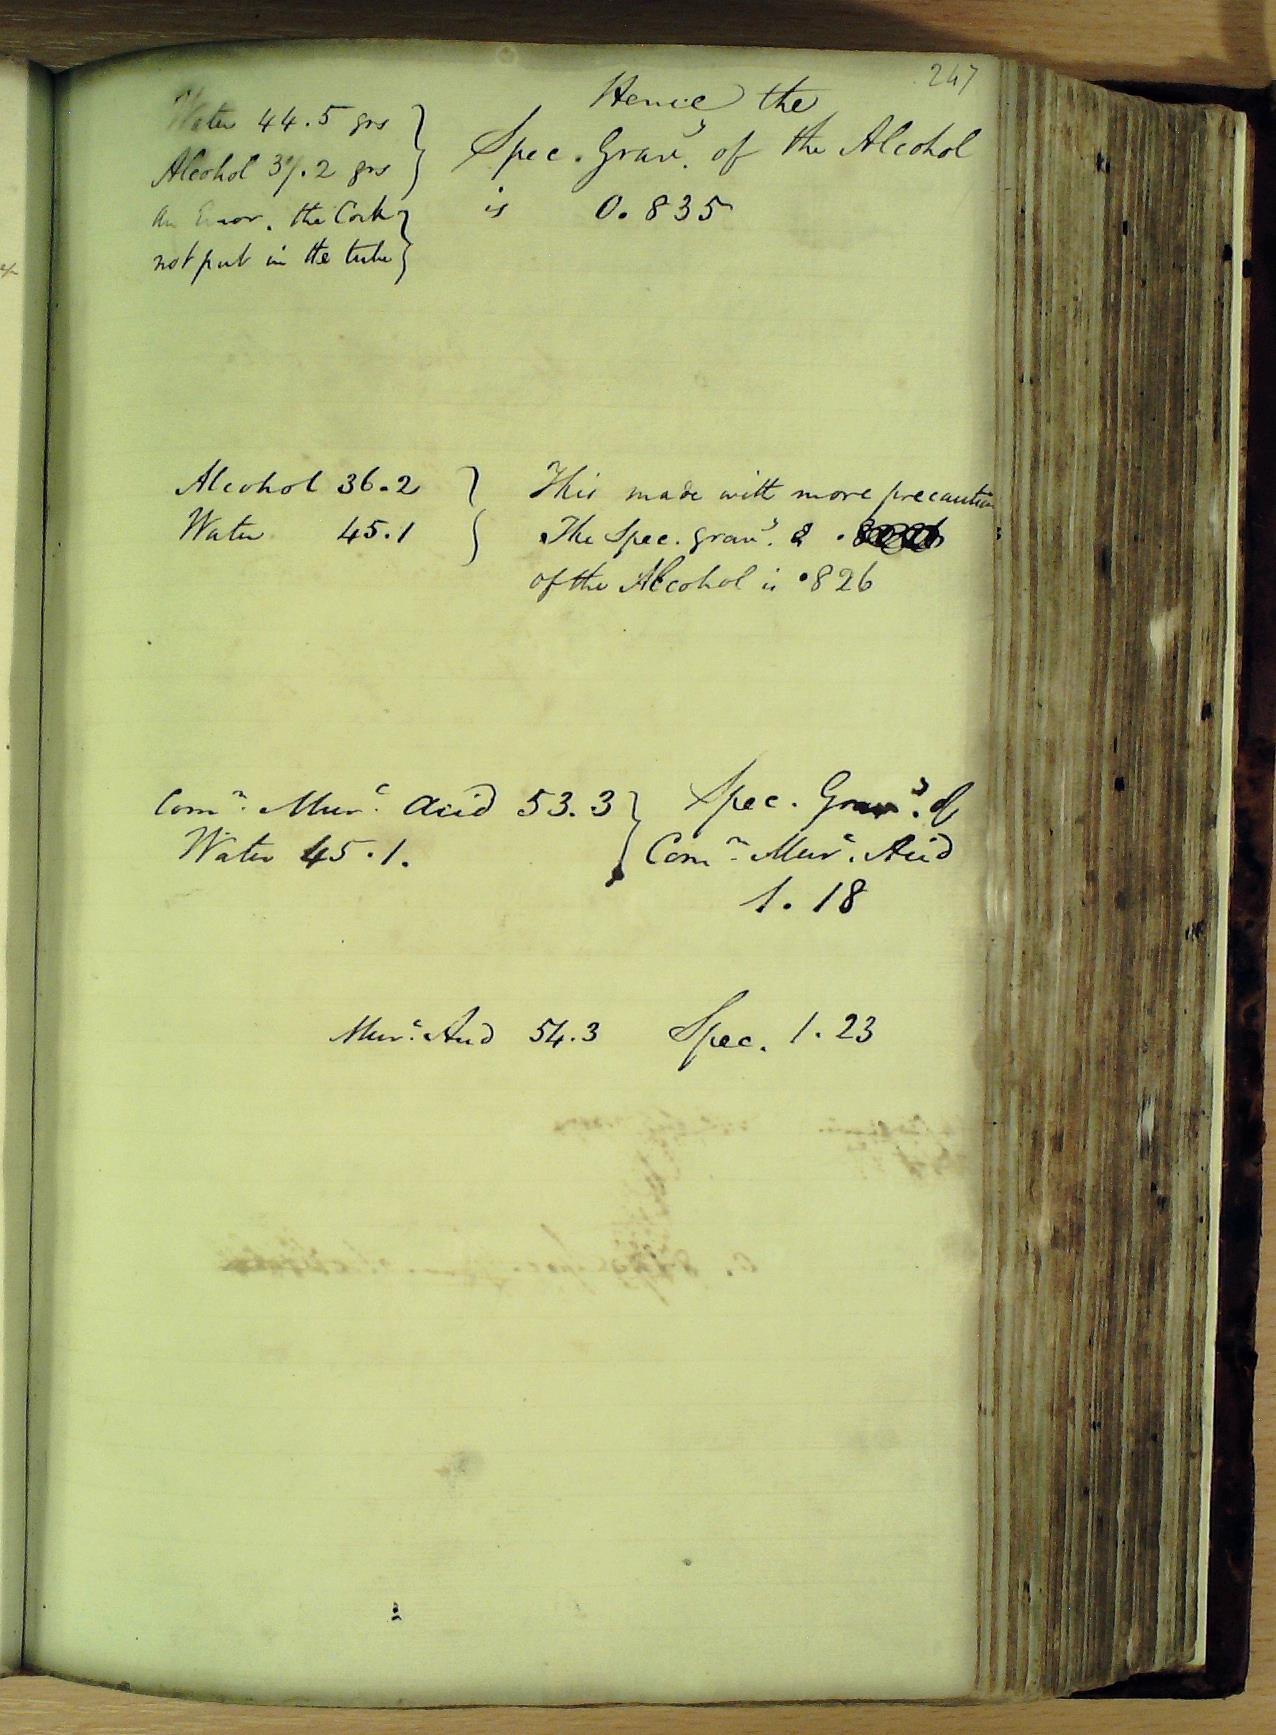 247
Water 44.5 grs
Alcohol 37.2 grs
an Error. the Cork
not put in the tube
Hence the
Spec. Gravy. of the Alcohol
is 0.835
Alcohol 36.2
Water 45.1
This made with more precaution
The Spec. gravy.
of the Alcohol is .826
Comn. Murc. Acid 53.3
Water 45.1.
Spec. Gravy. of
Comn. Murc. Acid
1.18
Murc. Acid 54.3 Spec. 1.23